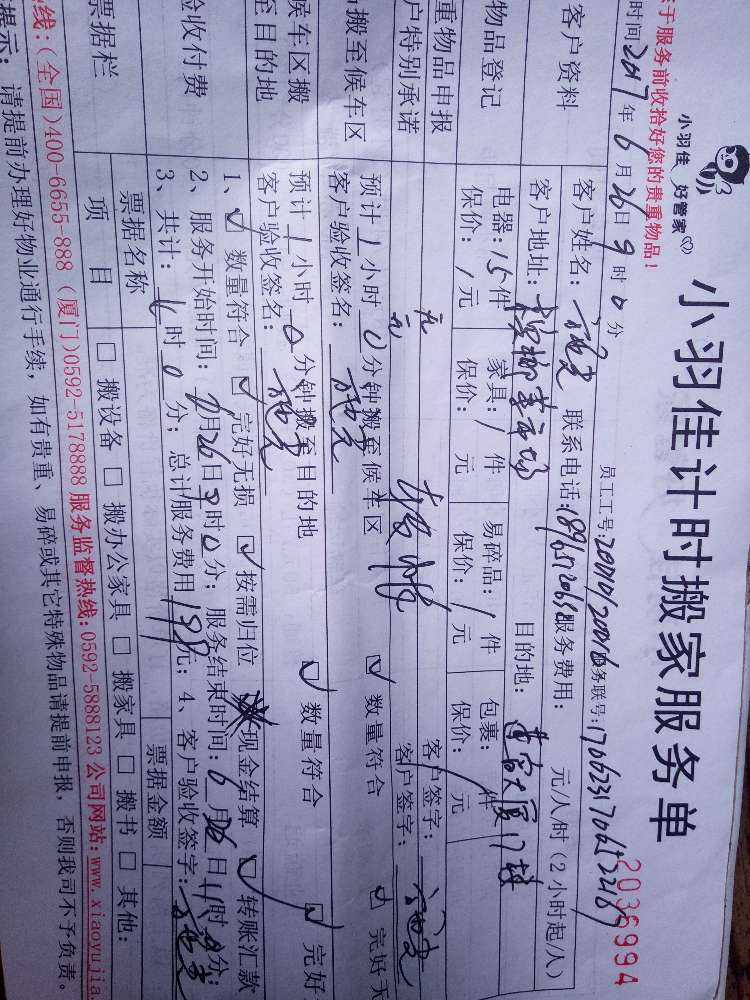 小羽佳 好管家
小羽佳计时搬家服务单
2036994
于服务前收拾好您的贵重物品！
时间2017年6月26日9时0分
客户资料
客户姓名： 联系电话： 服务费用： 元/人/时（2小时起/人）
客户地址： 目的地：
物品登记
电器：15件 家具：1件 易碎品：1件 包裹： 件
保价：1元 保价： 元 保价： 元 保价： 元
重物品申报
元 客户签字：
户特别承诺
元 客户签字：
搬至候车区
预计1小时0分钟搬至候车区 数量符合 完好无
客户验收签名：
候车区搬
至目的地
预计1小时0分钟搬至目的地 数量符合 完好
客户验收签名：
验收付费
1、 数量符合 完好无损 按需归位 现金结算 转账汇款
2、服务开始时间： 月26日9时0分；服务结束时间：6月26日11时 分；
3、共计： 时0分；总计服务费用198元；4、客户验收签字：
票据栏
票据名称 票据金额
项目 搬设备 搬办公家具 搬家具 搬书 其他：
线：(全国)400-6655-888 (厦门)0592-5178888 服务监督热线：0592-5888123 公司网站：www.xiaoyujia
提示：请提前办理好物业通行手续，如有贵重、易碎或其它特殊物品请提前申报，否则我司不予负责。